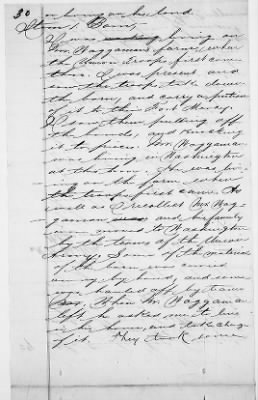 30 on his own land.
Item 1. Barn.
I was living on
Mr. Waggaman's farm, when
the Union troops first came
there. I was present, and
saw the troops take down
the barn, and carry a portion
of it to the Fort Marcy.
I saw them pulling off
the boards, and knocking
it to pieces. Mr. Waggaman
was living in Washington
at this time. He was
on the farm when
the troops first came. As
well as I recollect Mr. Wag-
gaman was and his family
were moved to Washington
by the teams of the Union
Army. Some of the material
of the barn was carried
away by hand, and some
was hauled off by teams
When Mr. Waggaman
left he asked me to live
in his house, and take charge
of it. They took some